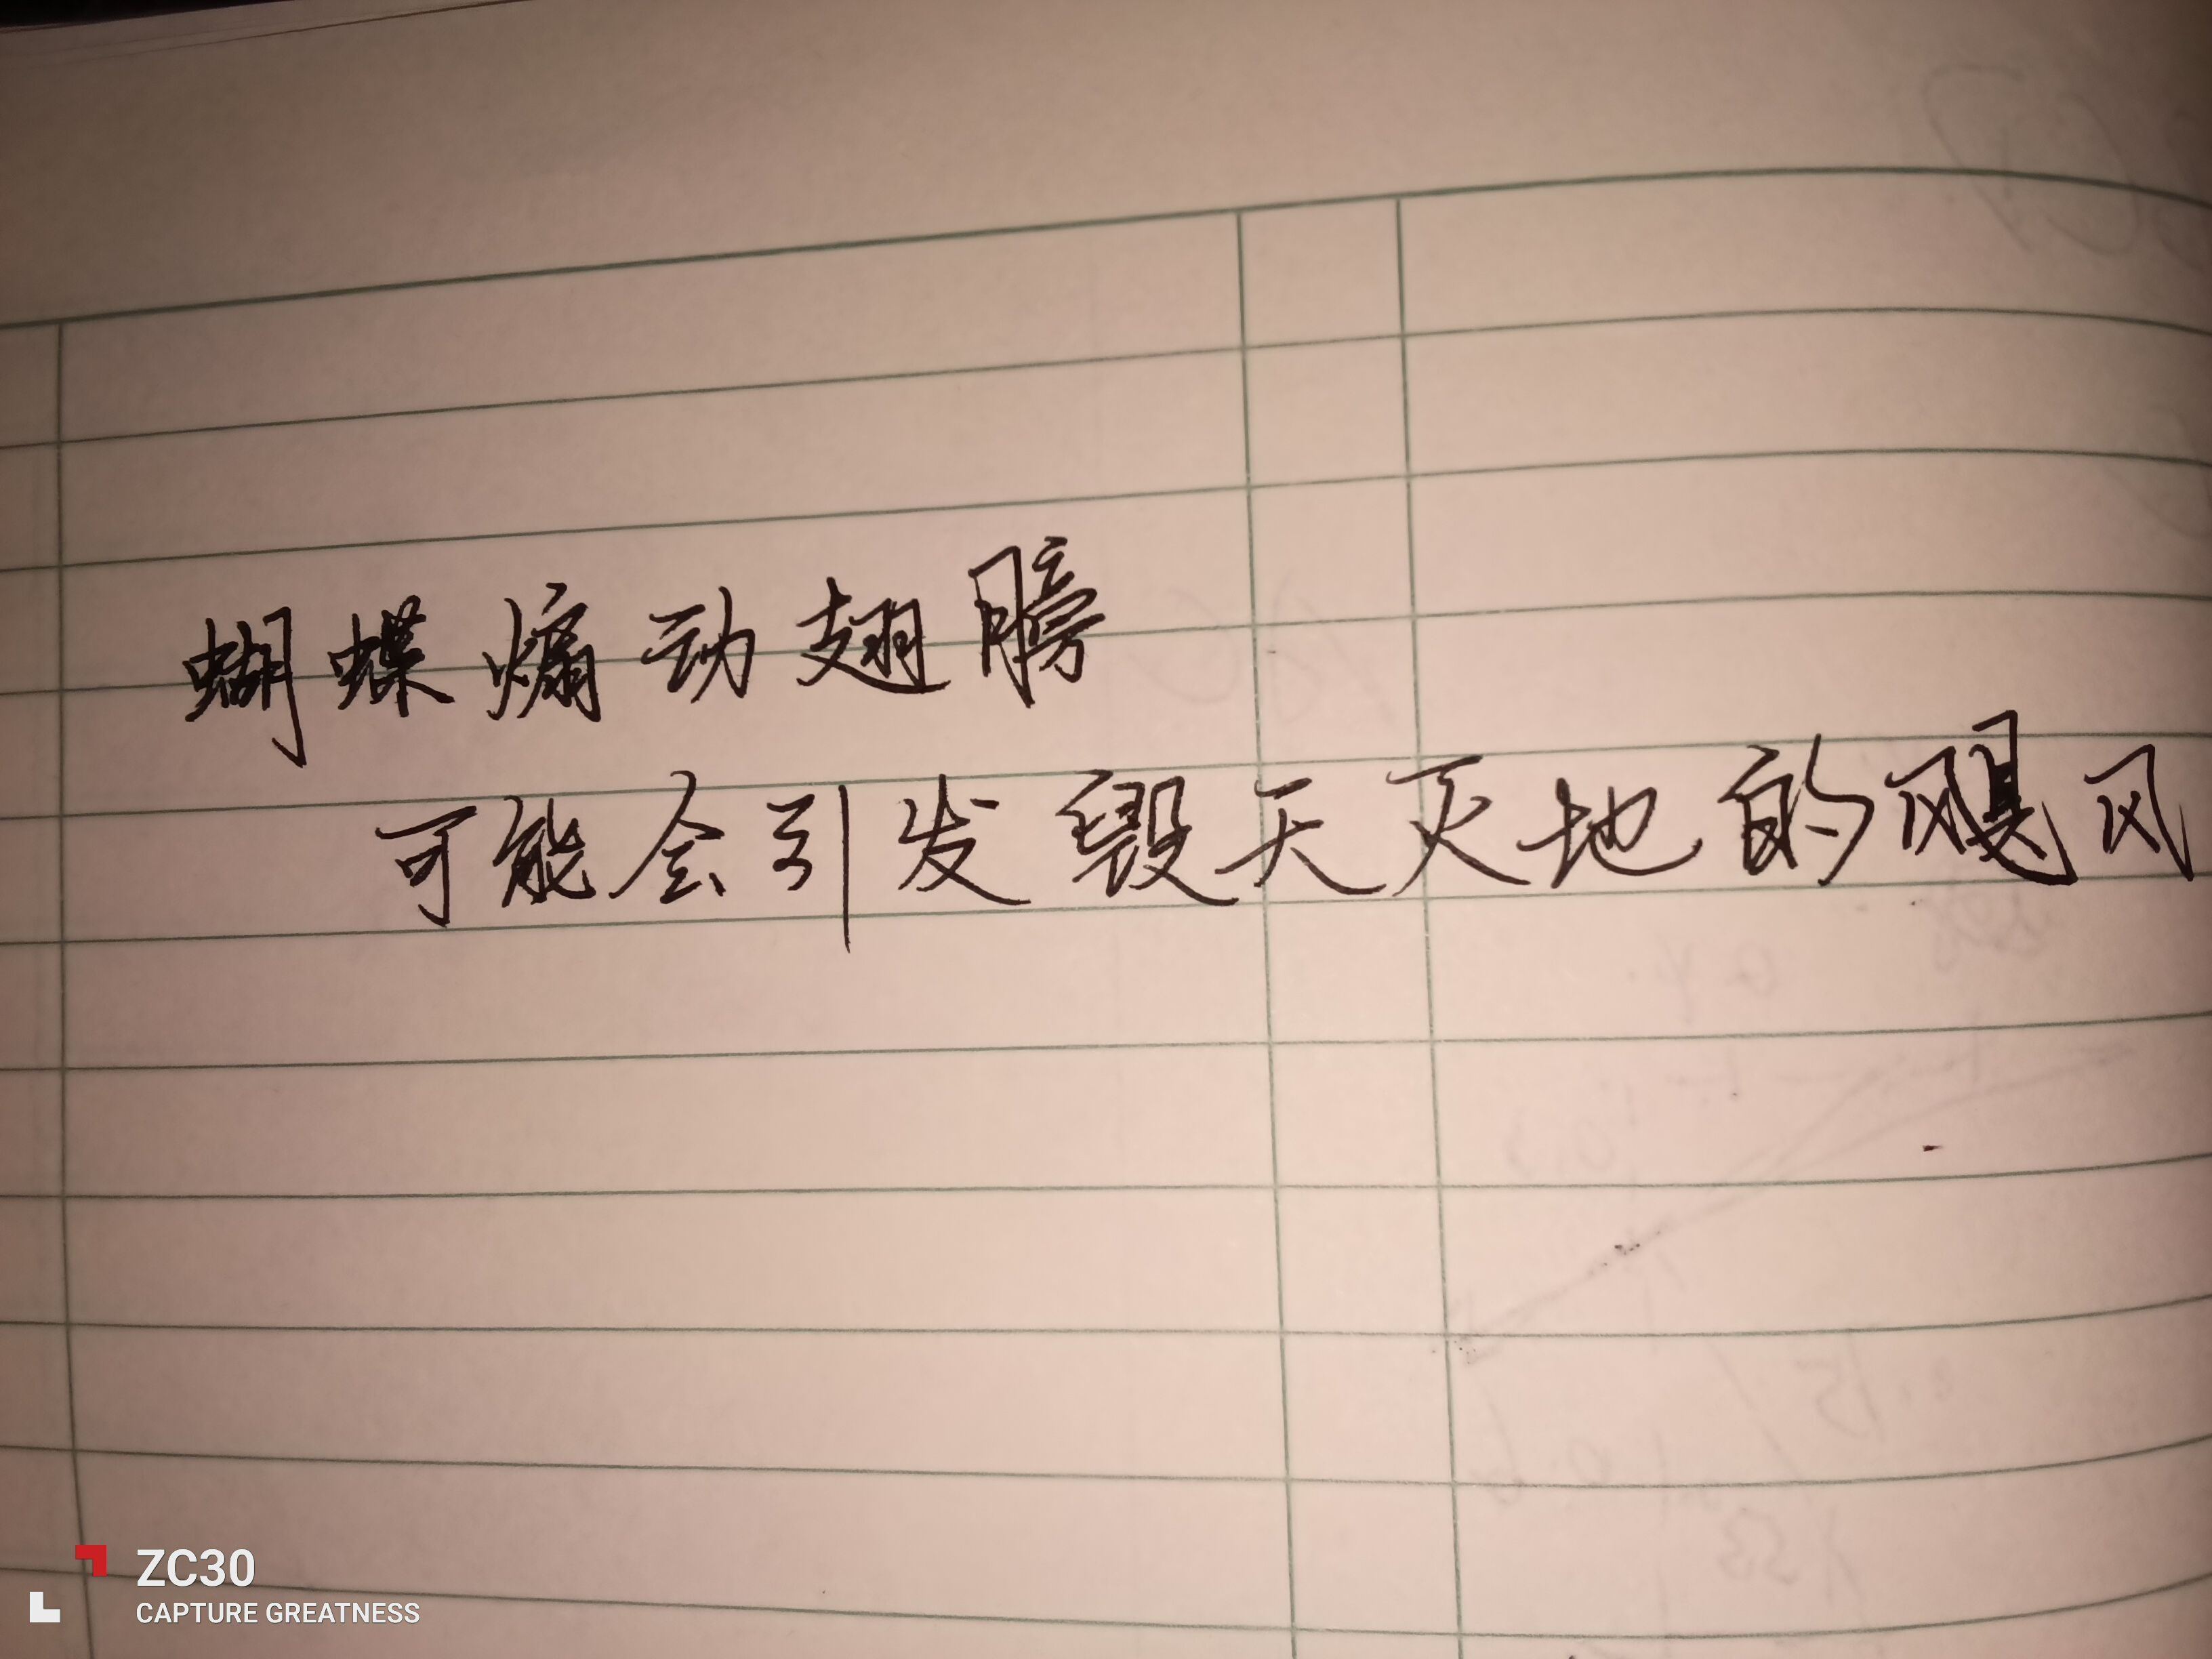 蝴蝶煽动翅膀
可能会引发毁天灭地的飓风
ZC30
CAPTURE GREATNESS